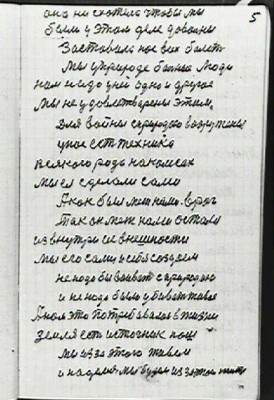 5
она не схотела чтобы мы
были у этом деле довольны
Заставила нас всех болеть
Мы у природе больные люди
нам надо у нее одно и другое
Мы не удовлетворены этим,
Для войны с природою вооружены
у нас есть техника
всякого рода на колесах
мы ее сделали сами
А как был меж нами враг
Так он меж нами остался
из внутри и внешности
мы его сами у себя создаем
не надо бы воевать с природою
и не надо было убивать живое
А нам это потребовалось в жизни
Земля есть источник наш
мы из-за этого живем
и надеемся мы будем из-за этого жить